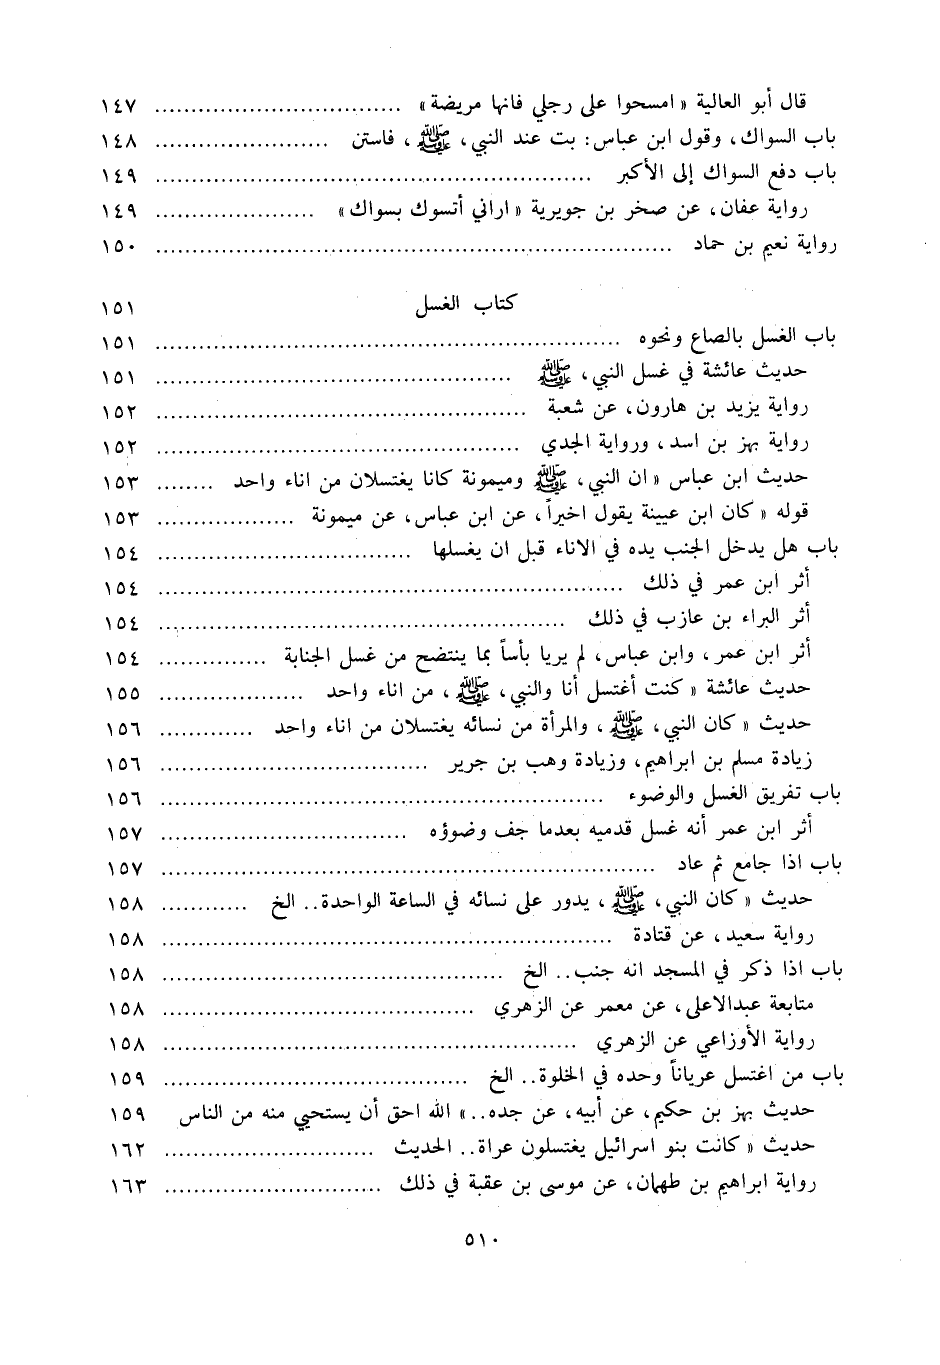 قال أبو العالية « امسحوا على رجلي فانها مريضة » ................................ ١٤٧
باب السواك، وقول ابن عباس: بت عند النبي، ﷺ، فاستن ........................ ١٤٨
باب دفع السواك إلى الأكبر ............................................................ ١٤٩
رواية عفان، عن صخر بن جويرية « اراني أتسوك بسواك » ...................... ١٤٩
رواية نعيم بن حماد ...................................................................... ١٥٠
كتاب الغسل ١٥١
باب الغسل بالصاع ونحوه .............................................................. ١٥١
حديث عائشة في غسل النبي، ﷺ ................................................ ١٥١
رواية يزيد بن هارون، عن شعبة .................................................. ١٥٢
رواية بهز بن اسد، ورواية الجدي ................................................. ١٥٢
حديث ابن عباس « ان النبي، ﷺ وميمونة كانا يغتسلان من اناء واحد ........ ١٥٣
قوله « كان ابن عيينة يقول اخيراً، عن ابن عباس، عن ميمونة ................... ١٥٣
باب هل يدخل الجنب يده في الاناء قبل ان يغسلها .................................. ١٥٤
أثر ابن عمر في ذلك .............................................................. ١٥٤
أثر البراء بن عازب في ذلك ...................................................... ١٥٤
أثر ابن عمر، وابن عباس، لم يريا بأساً بما ينتضح من غسل الجنابة ............... ١٥٤
حديث عائشة « كنت أغتسل أنا والنبي، ﷺ، من اناء واحد .................... ١٥٥
حديث « كان النبي، ﷺ، والمرأة من نسائه يغتسلان من اناء واحد ............. ١٥٦
زيادة مسلم بن ابراهيم، وزيادة وهب بن جرير .................................... ١٥٦
باب تفريق الغسل والوضوء ............................................................ ١٥٦
أثر ابن عمر أنه غسل قدميه بعدما جف وضوؤه .................................. ١٥٧
باب اذا جامع ثم عاد .................................................................... ١٥٧
حديث « كان النبي، ﷺ، يدور على نسائه في الساعة الواحدة.. الخ ............ ١٥٨
رواية سعيد، عن قتادة ............................................................ ١٥٨
باب اذا ذكر في المسجد انه جنب.. الخ .............................................. ١٥٨
متابعة عبدالاعلى، عن معمر عن الزهري .......................................... ١٥٨
رواية الأوزاعي عن الزهري ...................................................... ١٥٨
باب من اغتسل عرياناً وحده في الخلوة.. الخ ........................................ ١٥٩
حديث بهز بن حكيم، عن أبيه، عن جده.. » الله احق أن يستحيي منه من الناس ١٥٩
حديث « كانت بنو اسرائيل يغتسلون عراة.. الحديث ............................ ١٦٢
رواية ابراهيم بن طهمان، عن موسى بن عقبة في ذلك ............................ ١٦٣
٥١٠